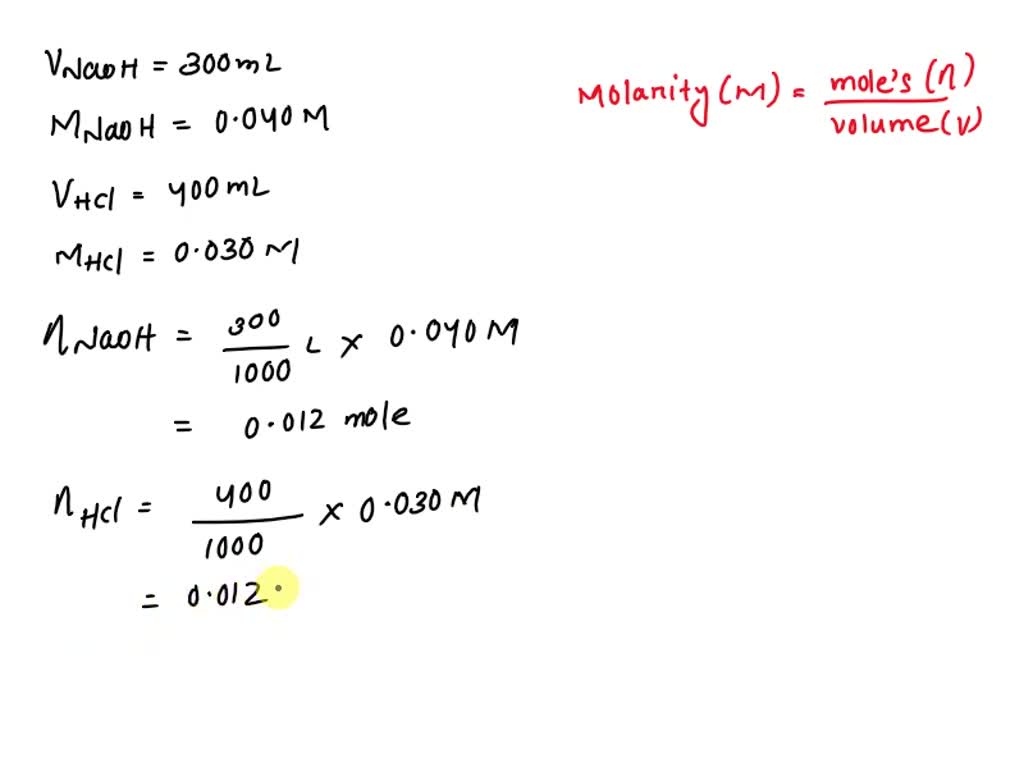 VNaOH = 300mL
MNaOH = 0.040 M
VHCl = 400mL
MHCl = 0.030 M
Molarity (M) = mole's (n) / volume (v)
nNaOH = 300 / 1000 L × 0.040 M
= 0.012 mole
nHCl = 400 / 1000 × 0.030 M
= 0.012